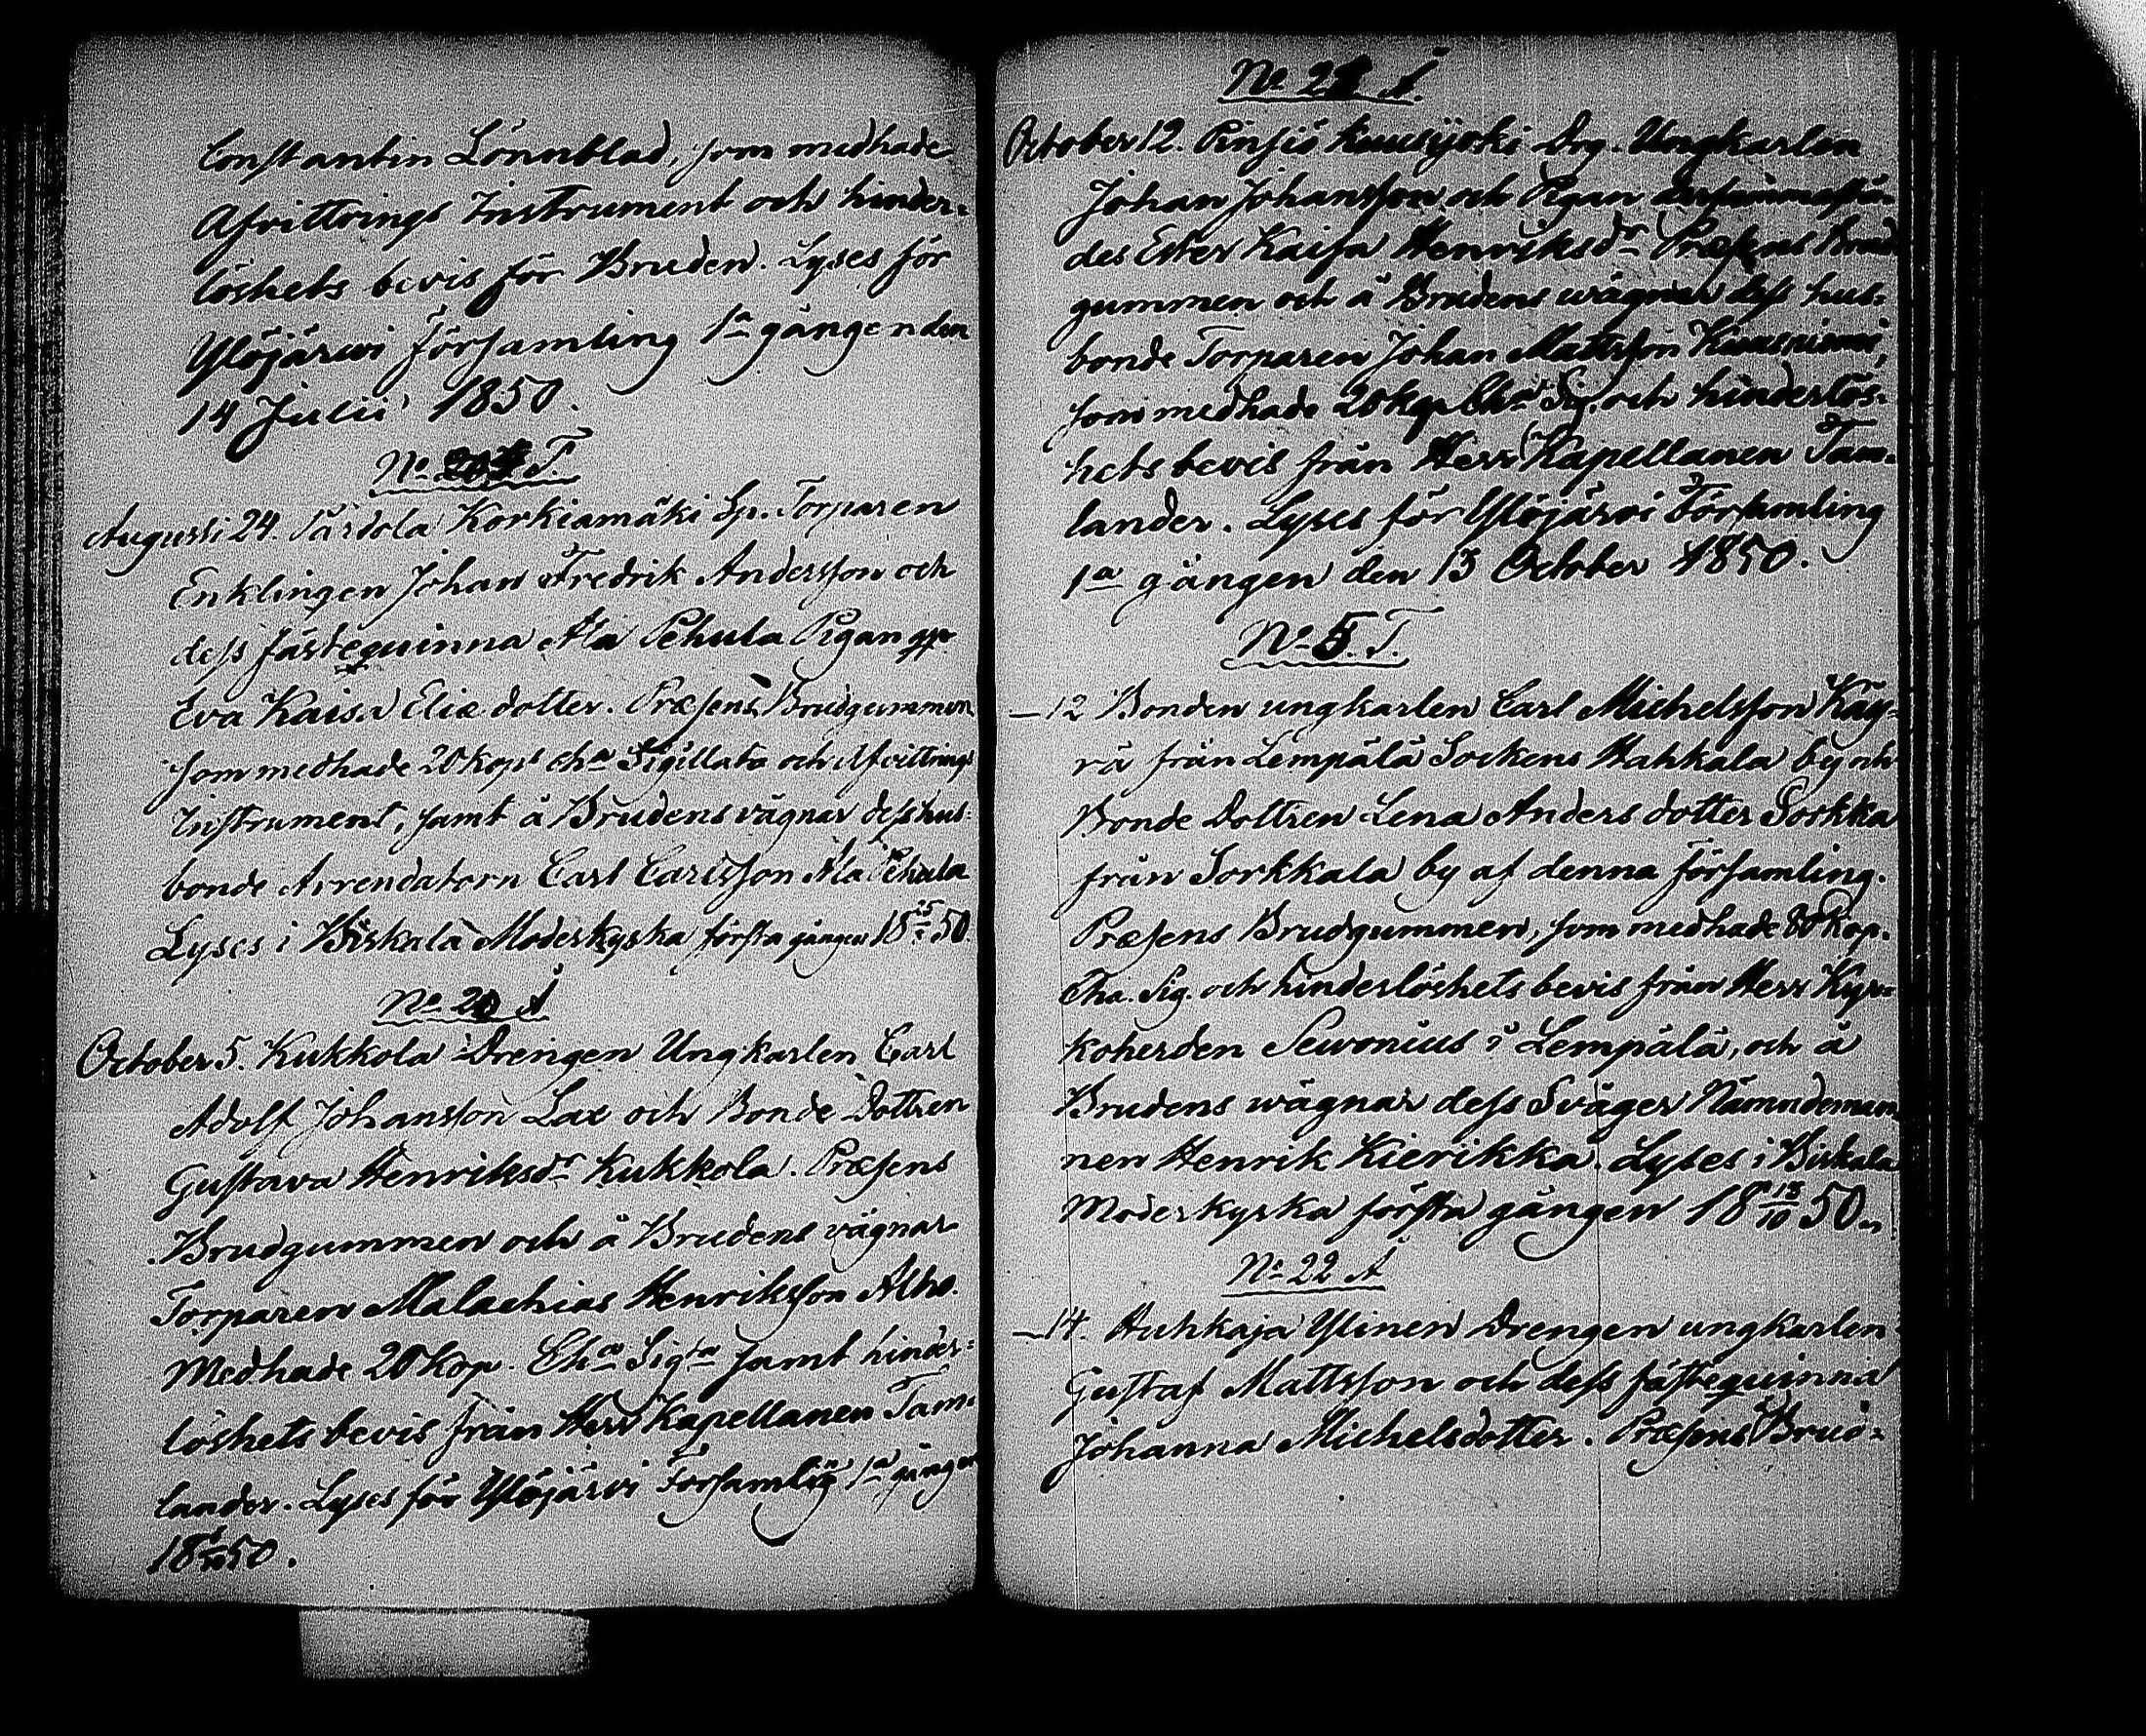 Constantin Lönnblad, som medhade
Afvittrings Instrument och hinder=
löshets bevis för Bruden. Lyses för
Ylöjärvi församling 1a gången den
14 Julii 1850.
No 20 T.
Augusti 24. Pärdola Korkiamäki Sp. Torparen
Enklingen Johan Fredrik Andersson och
dess fästequinna Ala Pehula Pigan
Eva Kaisa Eliædotter. Præsens Brudgummen
som medhade 20 kops cha Sigillata och Afvittrings
Instrument, samt å Brudens vägnar dess hus=
bonde Arrendatorn Carl Carlsson Ala Pehula
Lyses i Birkala Moderkyrka första gången 18 25 50.
No 20 A
October 5. Kukkola Drengen Ungkarlen Carl
Adolf Johansson Lax och Bonde Dottren
Gustava Henriksdr Kukkola. Præsens
Brudgummen och å Brudens vägnar
Torparen Malachias Henriksson Alho.
Medhade 20 kop. Cha Sigta samt hinder=
löshets bevis från Herr Kapellanen Tam=
lander. Lyses för Ylöjärvi Församling 1a gången
18 50.
No 21 A.
October 12. Pinsiö Kuusijoki Drg. Ungkarlen
Johan Johansson och Pigan
des Ester Kaisa Henriksdr Præsens Brud
gummen och å Brudens wägnar dess hus=
bonde Torparen Johan Mattsson Kuusniemi,
som medhade 20 kop Cha Sig. och hinderlös=
hets bevis från Herr Kapellanen Tam=
lander. Lyses för Ylöjärvi Församling
1a gången den 13 October 1850.
No 5. T.
— 12 Bonden ungkarlen Carl Michelsson Käy=
rä från Lempälä Sockens Hahkala by och
Bonde Dottren Lena Andersdotter Sorkka
från Sorkkala by af denna församling.
Præsens Brudgummen, som medhade 80 Kop.
Cha. Sig. och hinderlöshets bevis från Herr Kyr=
koherden Sevonius i Lempälä, och å
Brudens wägnar dess Sväger Nämndeman
nen Henrik Kierikka. Lyses i Birkala
Moderkyrka första gången 18 13/10 50.
No 22 A
— 14. Huhkaja Ylinen Drengen ungkarlen
Gustaf Mattsson och dess fästequinna
Johanna Michelsdotter. Præsens Brud=